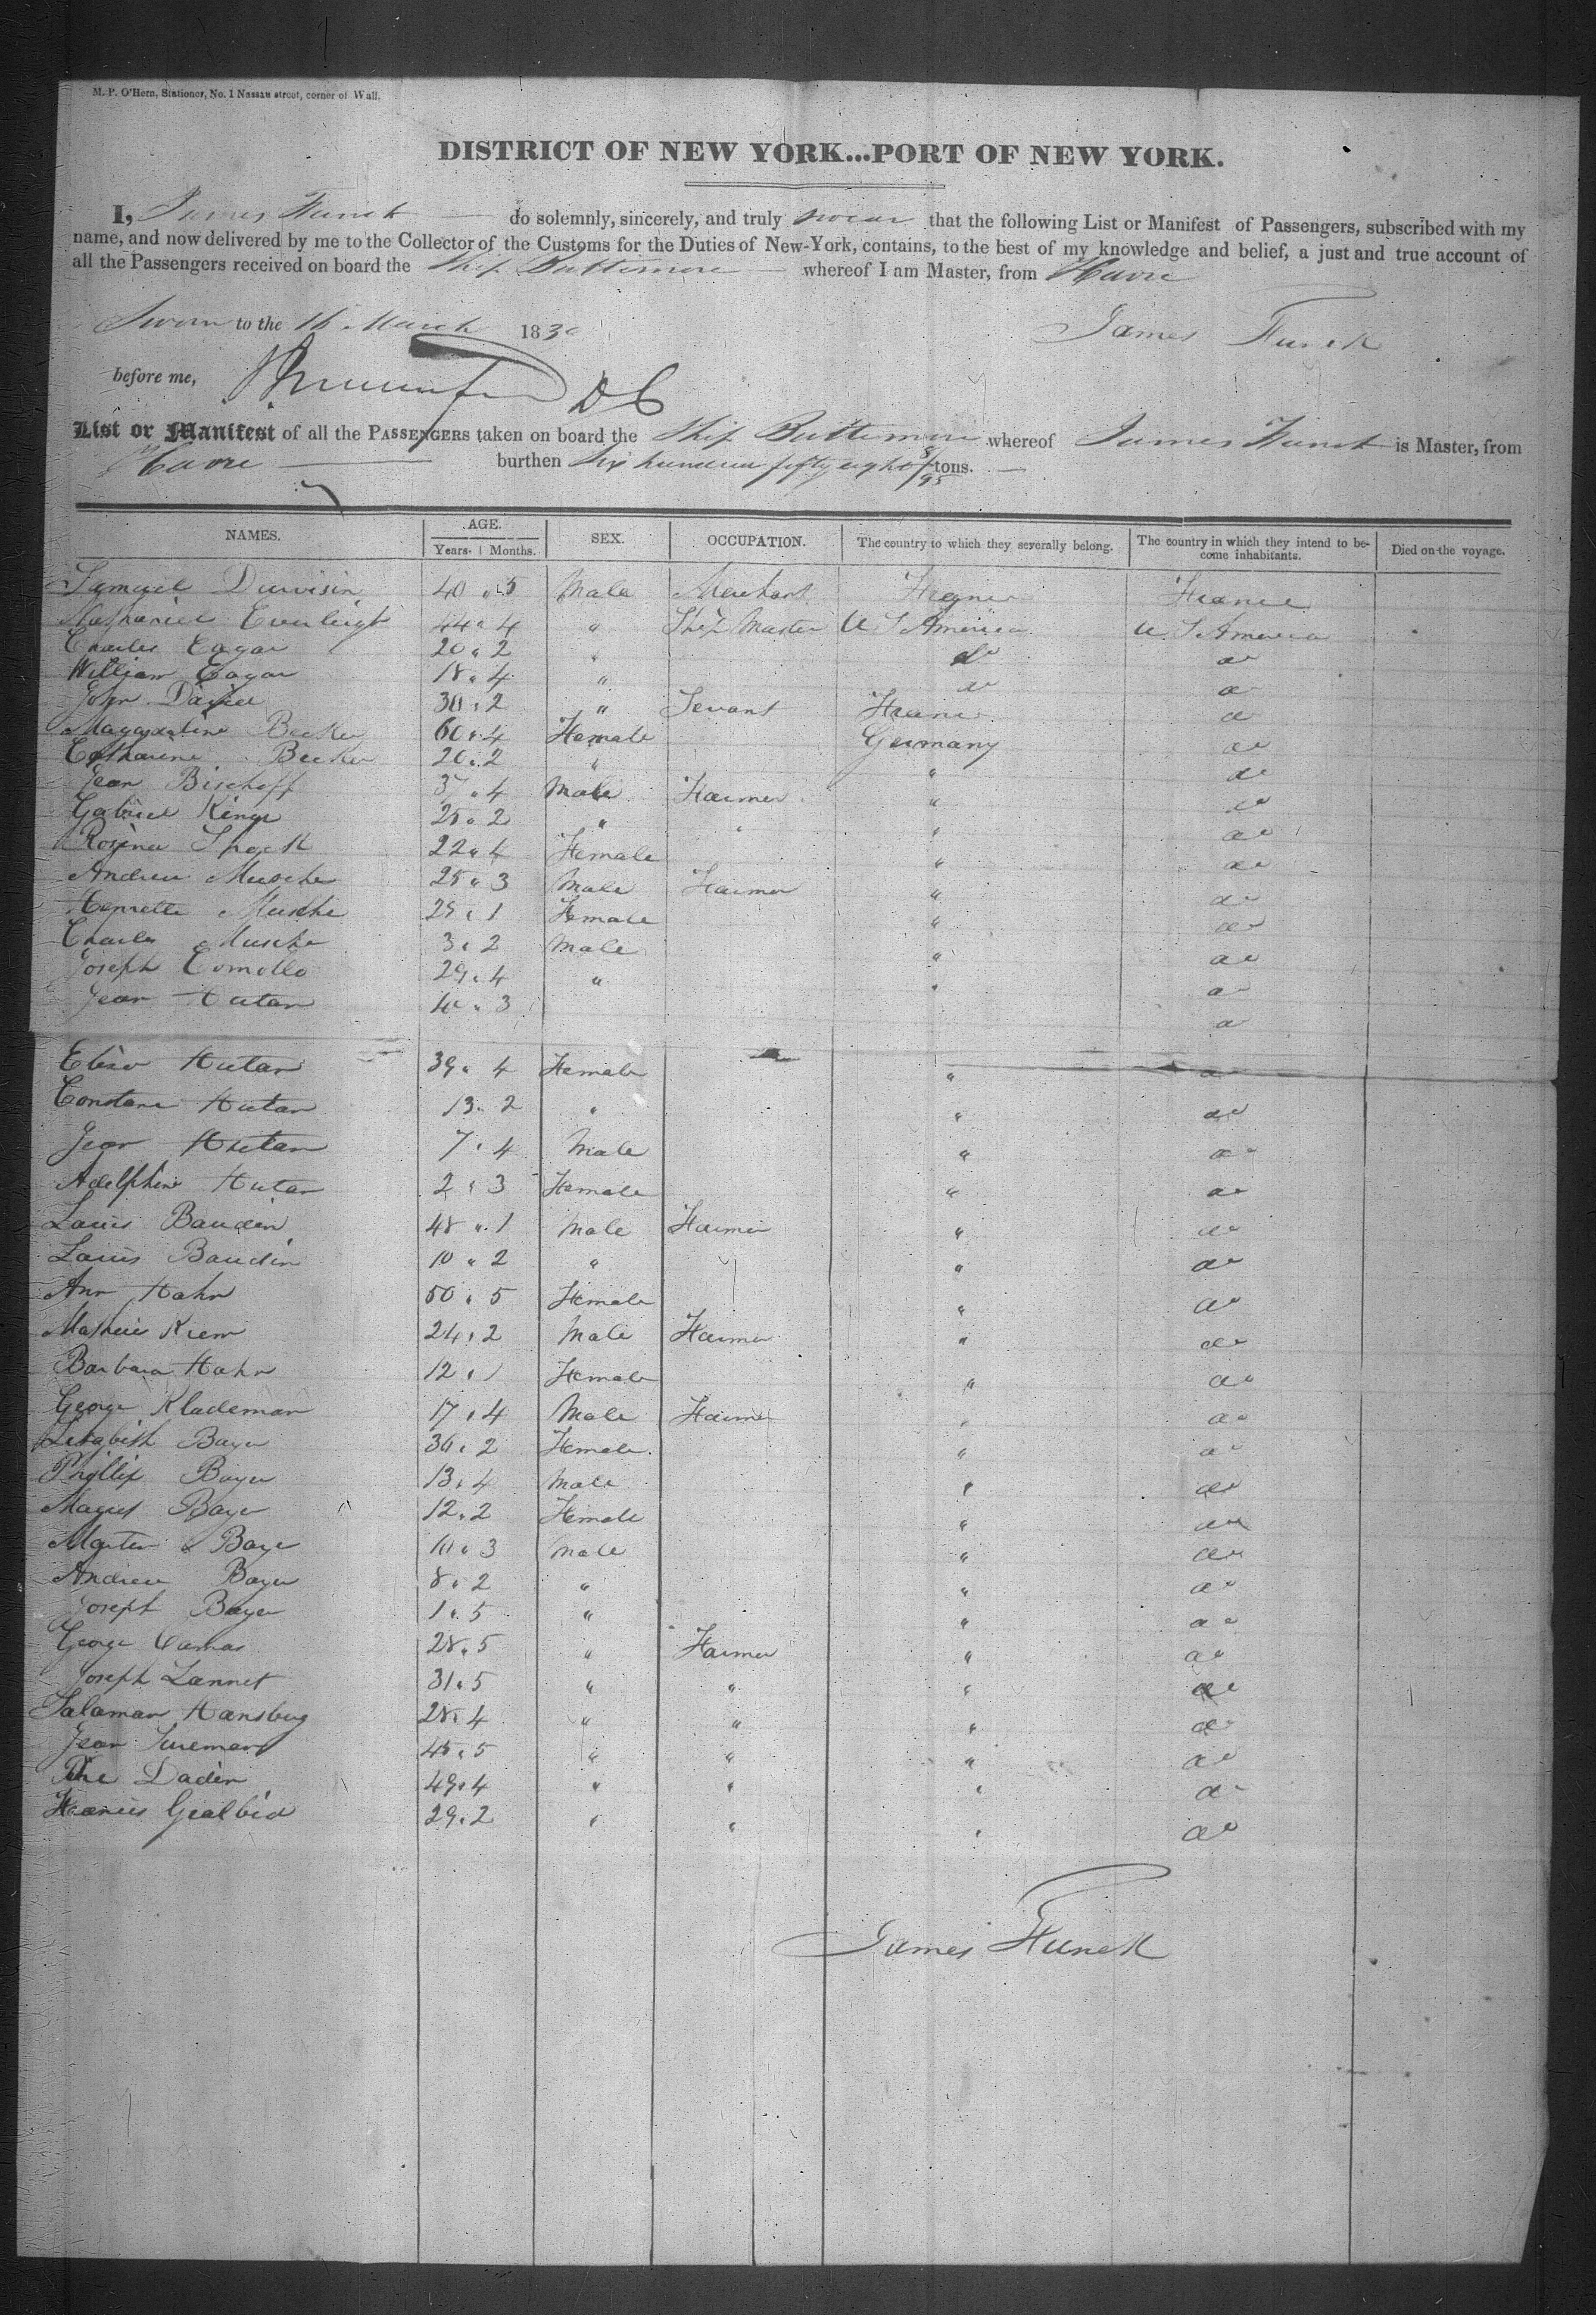 M. P. O'Hern, Stationer, No. 1 Nassau street, corner of Wall.
DISTRICT OF NEW YORK...PORT OF NEW YORK.
I, James Funck do solemnly, sincerely, and truly swear that the following List or Manifest of Passengers, subscribed with my
name, and now delivered by me to the Collector of the Customs for the Duties of New-York, contains, to the best of my knowledge and belief, a just and true account of
all the Passengers received on board the Ship Baltimore whereof I am Master, from Havre
Sworn to the 16 March 1830 James Funck
before me, DC
List or Manifest of all the PASSENGERS taken on board the Ship Baltimore whereof James Funck is Master, from
Havre burthen Six hundred fifty eight 5/95 tons.
NAMES. AGE. Years. Months. SEX. OCCUPATION. The country to which they severally belong. The country in which they intend to become inhabitants. Died on the voyage.
Samuel 40 " 5 Male Merchant France
Nathaniel Everleigh 44 " 4 " Ship Master U S America U S America
Charles Eagar 20 " 2 " do do
William Eagar 18 " 4 " do do
John 30 " 2 " Servant France do
Magdaline Becker 60 " 4 Female Germany do
Catharine Becker 20 " 2 " " do
Jean Bischoff 37 " 4 Male Farmer " do
Gabriel 25 " 2 " " " do
Rosina 22 " 4 Female " do
Andrew Musche 25 " 3 Male Farmer " do
Henrette Musche 29 " 1 Female " do
Charles Musche 3 " 2 Male " do
Joseph Comollo 29 " 4 " " do
Jean Hutan 40 " 3 do
Elise Hutan 39 " 4 Female " do
Constane Hutan 13 " 2 " " do
Jean Hutan 7 " 4 Male " do
Adelphine Hutan 2 " 3 Female " do
Louis Baudin 48 " 1 Male Farmer " do
Louis Baudin 10 " 2 " " do
Ann Hahn 50 " 5 Female " do
Kiem 24 " 2 Male Farmer " do
Barbara Hahn 12 " 1 Female " do
George Klademan 17 " 4 Male Farmer " do
Bayer 36 " 2 Female " do
Phillip Bayer 13 " 4 Male " do
Bayer 12 " 2 Female " do
Marten Bayer 10 " 3 Male " do
Andrew Bayer 8 " 2 " " do
Joseph Bayer 1 " 5 " " do
George 28 " 5 " Farmer " do
Joseph Lannet 31 " 5 " " " do
Salaman Hansberg 28 " 4 " " " do
Jean 45 " 5 " " " do
Dadin 49 " 4 " " " do
Francis 29 " 2 " " " do
James Funck